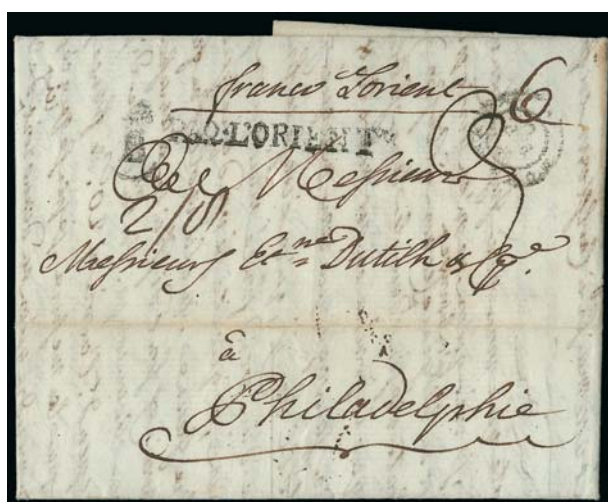 franco L'orient
6
PAQ.L'ORIENT
Messieurs
2/0
Messieurs Et.ne Dutilh & Cie.
à
Philadelphie